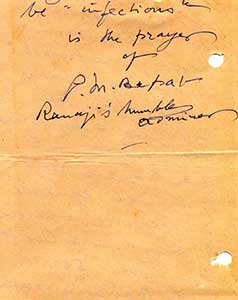 be "infectious"
is the prayer
of
P. M. Bapat
Ranaji's humble
admirer